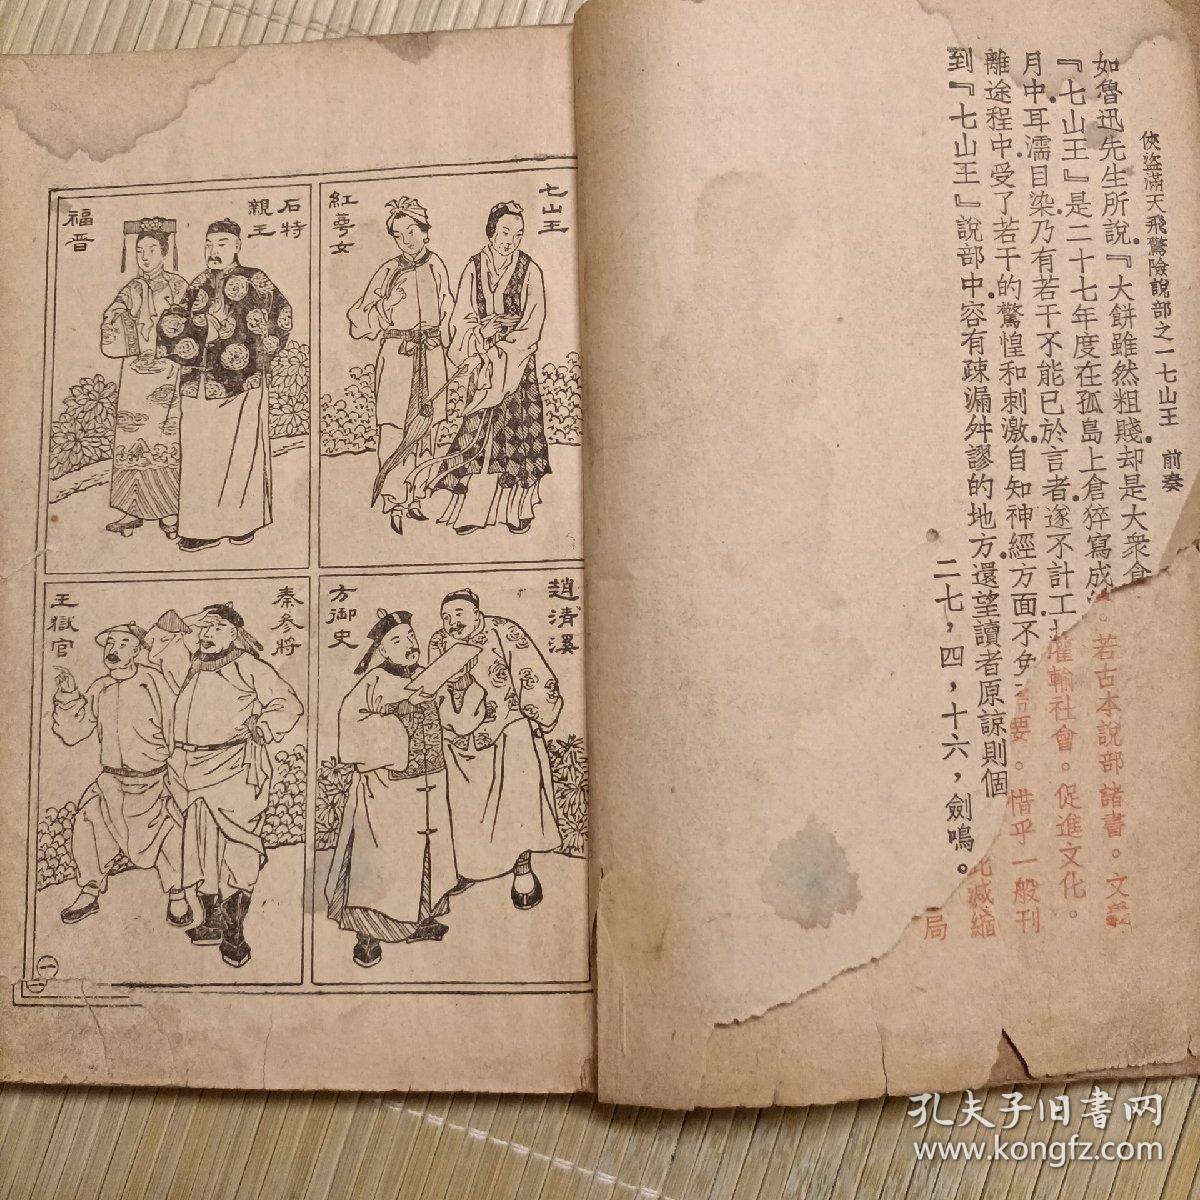 俠盜滿天飛驚險說部之一七山王 前奏
如魯迅先生所說『大餅雖然粗賤却是大衆食
『七山王』是二十七年度在孤島上倉猝寫成
月中耳濡目染乃有若干不能已於言者遂不計工
離途程中受了若干的驚惶和刺激自知神經方面不免
到『七山王』說部中容有疎漏舛謬的地方還望讀者原諒則個
二七，四，十六，劍鳴。
。若古本說部諸書。文義
灌輸社會。促進文化。
要。惜乎一般刊
減縮
局
七山王
紅蕚女
石特
親王
福晋
趙淸溪
方御史
秦參將
王獄官
一
孔夫子旧書网
www.kongfz.com